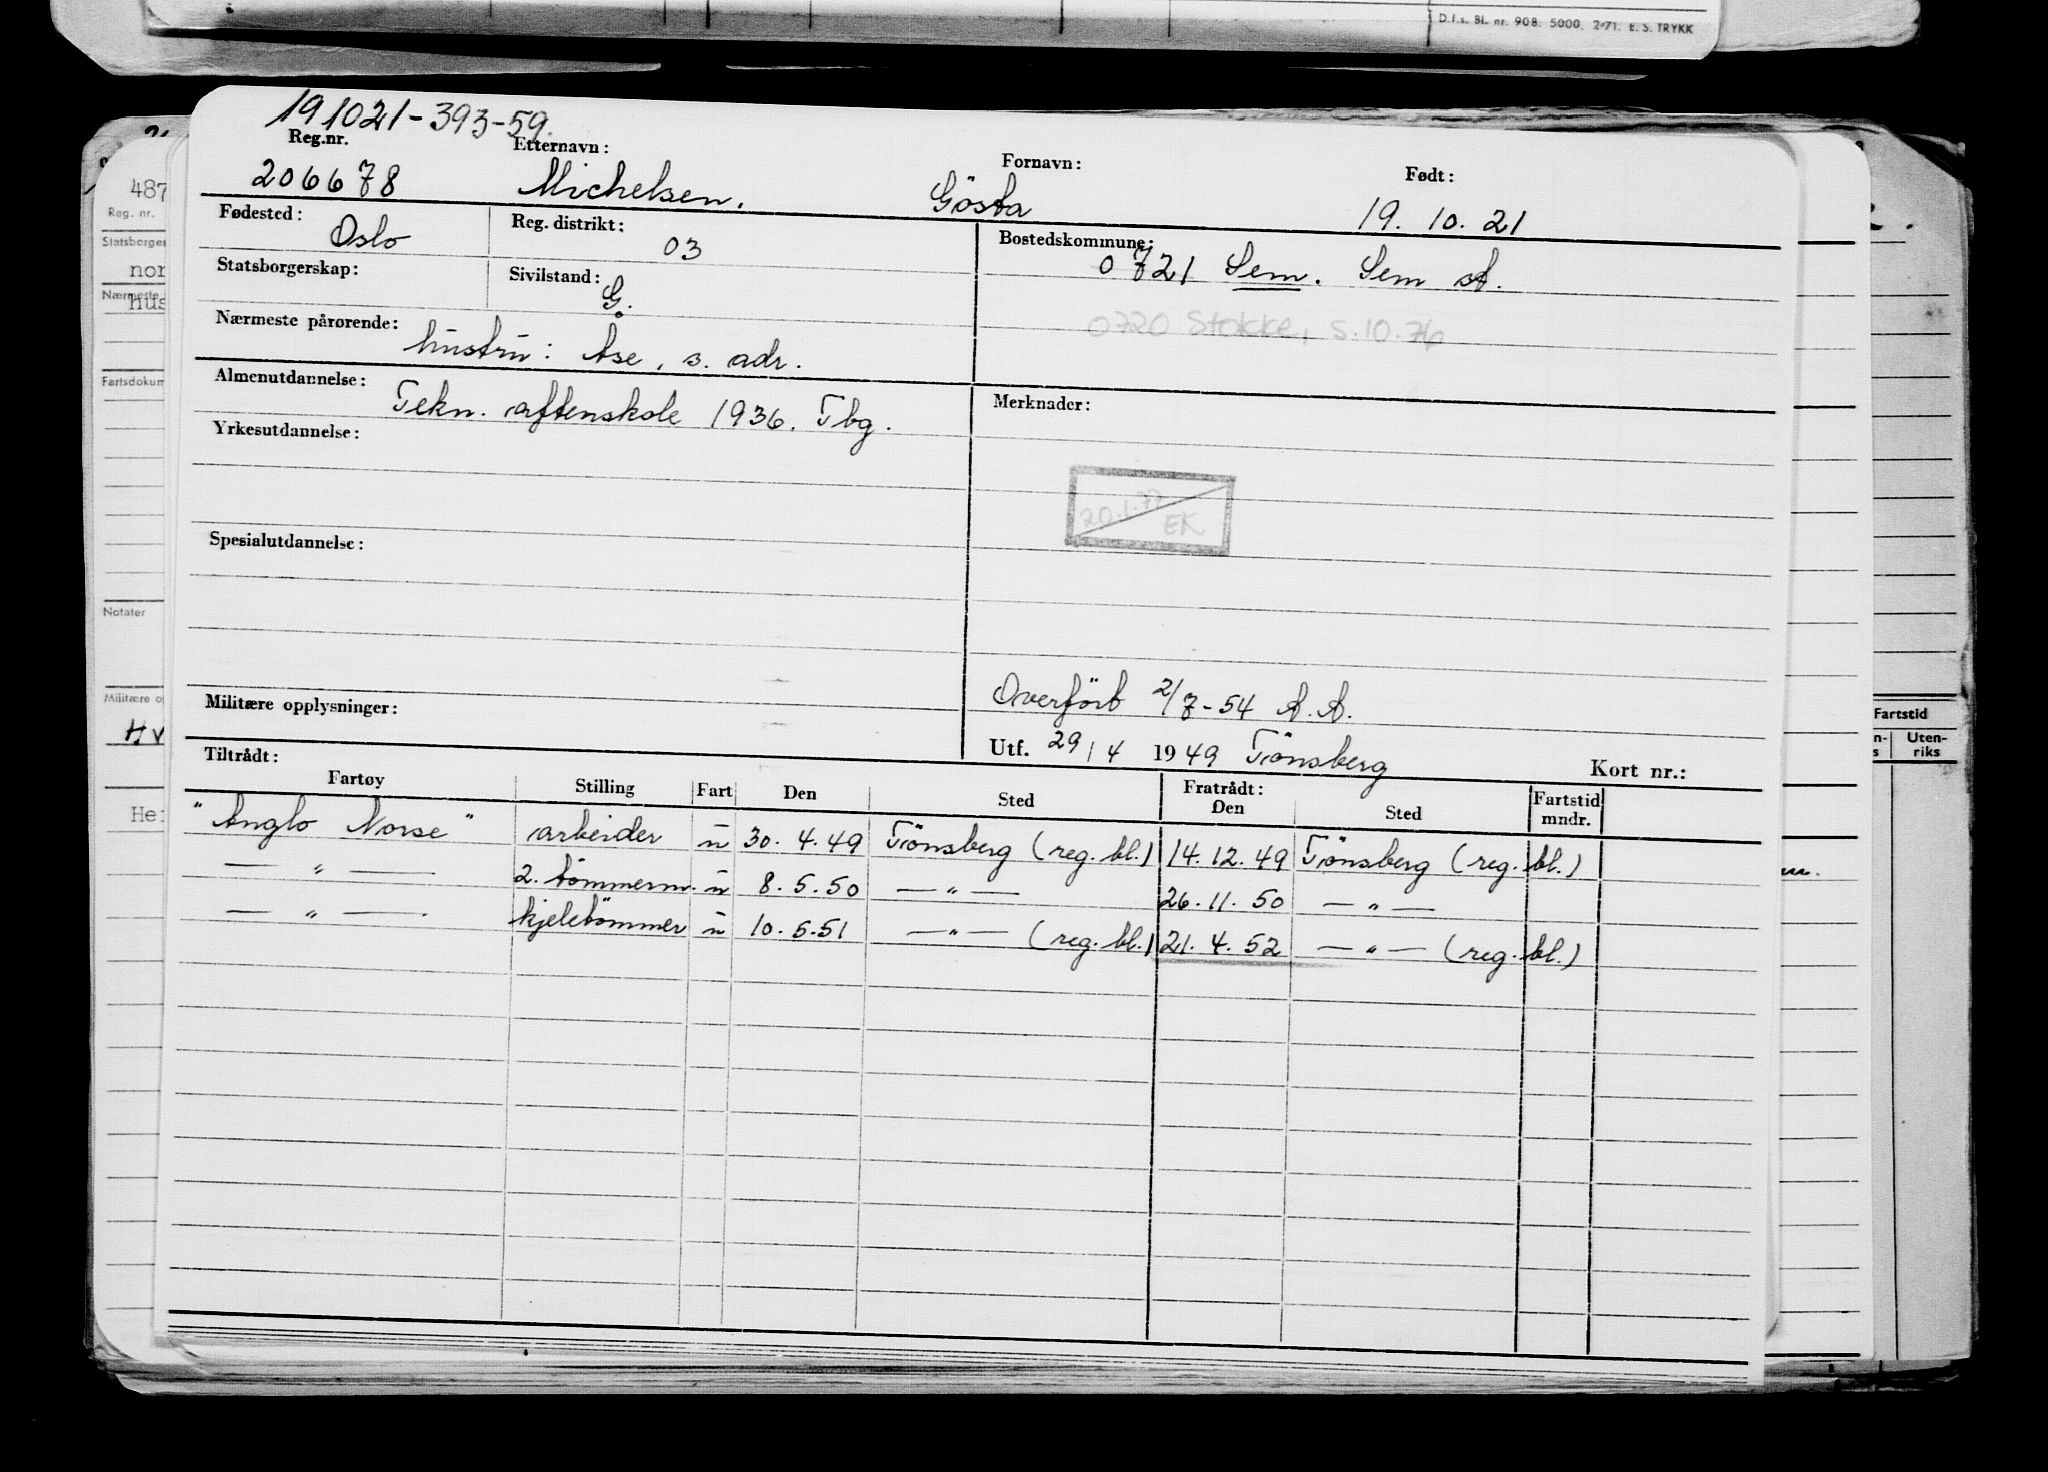 D.f.s. Bl. nr. 908. 5000. 2-71. E. S. TRYKK
191021-393-59.
Reg.nr. Etternavn: Fornavn: Født:
206678 Michelsen. Gösta 19. 10. 21
Fødested: Oslo Reg. distrikt: 03 Bostedskommune: 0721 Sem. Sem st.
Statsborgerskap: Sivilstand: G.
0720 Stokke, s. 10. 76
Nærmeste pårørende: hustru: Åse, s. adr.
Almenutdannelse: Tekn. aftenskole 1936. Tbg. Merknader:
Yrkesutdannelse:
20.1.77 EK
Spesialutdannelse:
Overfört 2/7-54 A. A.
Militære opplysninger:
Utf. 29/4 1949 Tönsberg Kort nr.:
Tiltrådt: Fratrådt:
Fartøy Stilling Fart Den Sted Den Sted Fartstid mndr.
"Anglo Norse" arbeider u 30. 4. 49 Tönsberg (reg. bl.) 14. 12. 49 Tönsberg (reg. bl.)
— " — 2. tömmerm. u 8. 5. 50 — " — 26. 11. 50 — " —
— " — kjeletömmer u 10. 5. 51 — " — (reg. bl.) 21. 4. 52 — " — (reg. bl.)
487
Reg. nr.
Statsborger
nor
Nærmeste
hus
Fartsdokum
Notater
Militære o
Hv
He
Fartstid
Uten-
riks